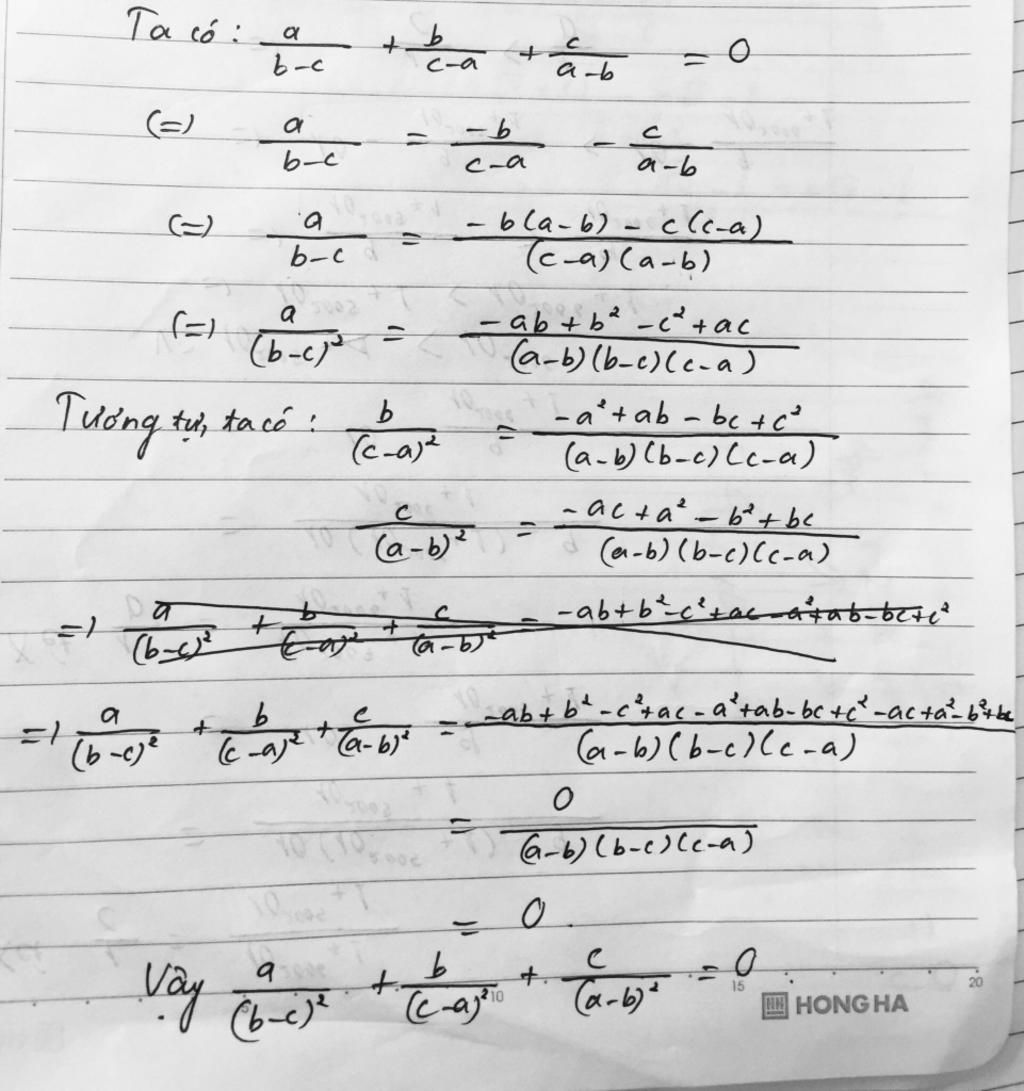 Ta có: a/(b-c) + b/(c-a) + c/(a-b) = 0
(=) a/(b-c) = -b/(c-a) - c/(a-b)
(=) a/(b-c) = (-b(a-b) - c(c-a))/((c-a)(a-b))
(=) a/(b-c)² = (-ab + b² - c² + ac)/((a-b)(b-c)(c-a))
Tương tự, ta có: b/(c-a)² = (-a² + ab - bc + c²)/((a-b)(b-c)(c-a))
c/(a-b)² = (-ac + a² - b² + bc)/((a-b)(b-c)(c-a))
=) a/(b-c)² + b/(c-a)² + c/(a-b)² = -ab + b² - c² + ac - a² + ab - bc + c²
=) a/(b-c)² + b/(c-a)² + c/(a-b)² = (-ab + b² - c² + ac - a² + ab - bc + c² - ac + a² - b² + bc)/((a-b)(b-c)(c-a))
= 0/((a-b)(b-c)(c-a))
= 0.
Vậy a/(b-c)² + b/(c-a)² + c/(a-b)² = 0
5 10 15 20
HONG HA